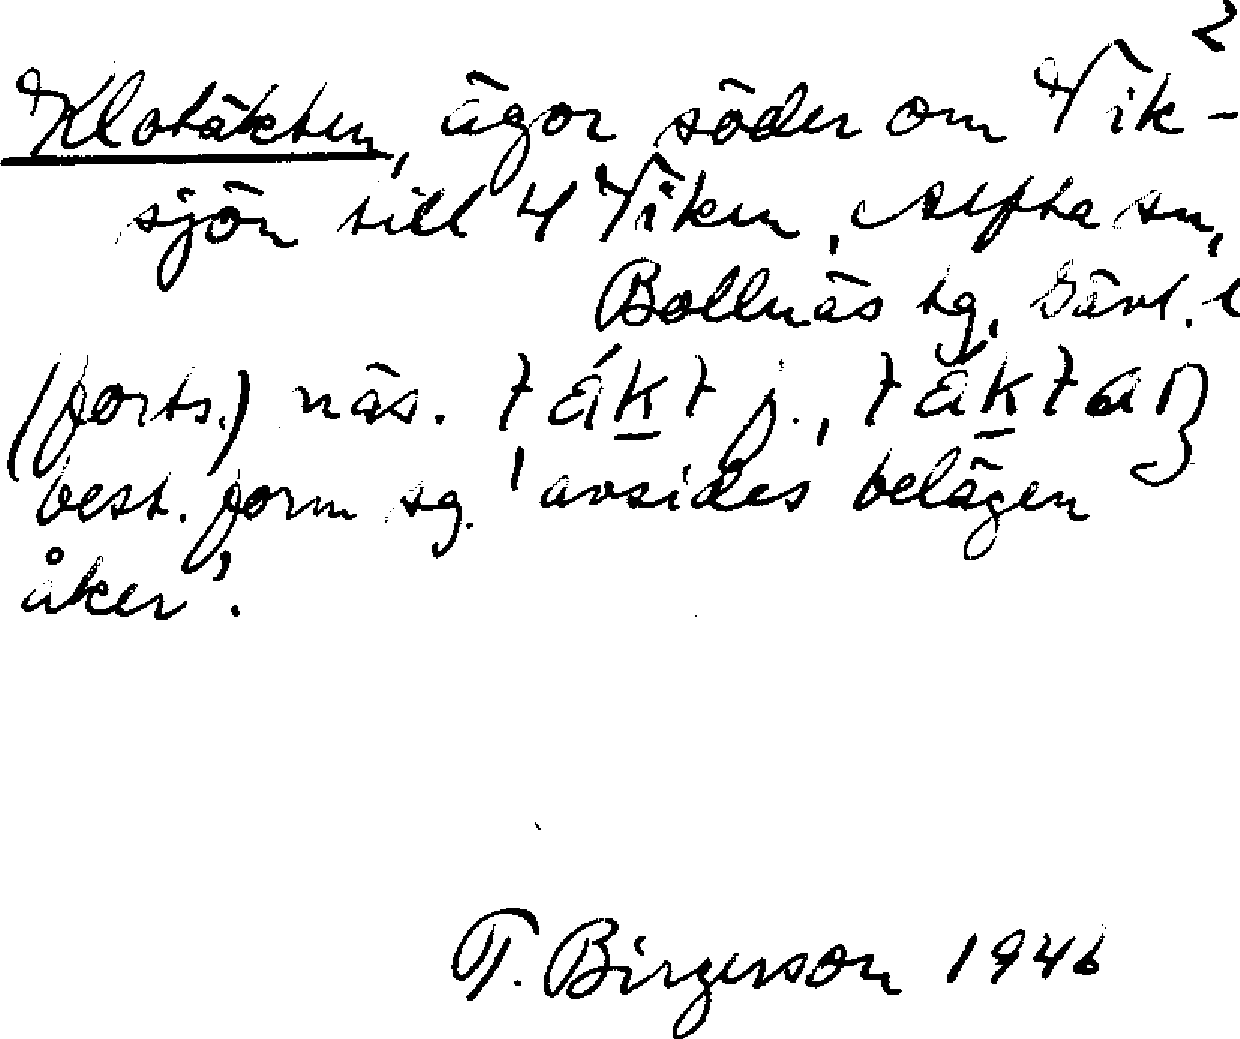 2
Klotäkten, ägor söder om Vik-
sjön till 4 Viken, Alfta sn,
Bollnäs tg, Gävl. l
(forts.) näs. täkt f., täktan
best. form sg. 'avsides belägen
åker'.
T. Birgerson 1946